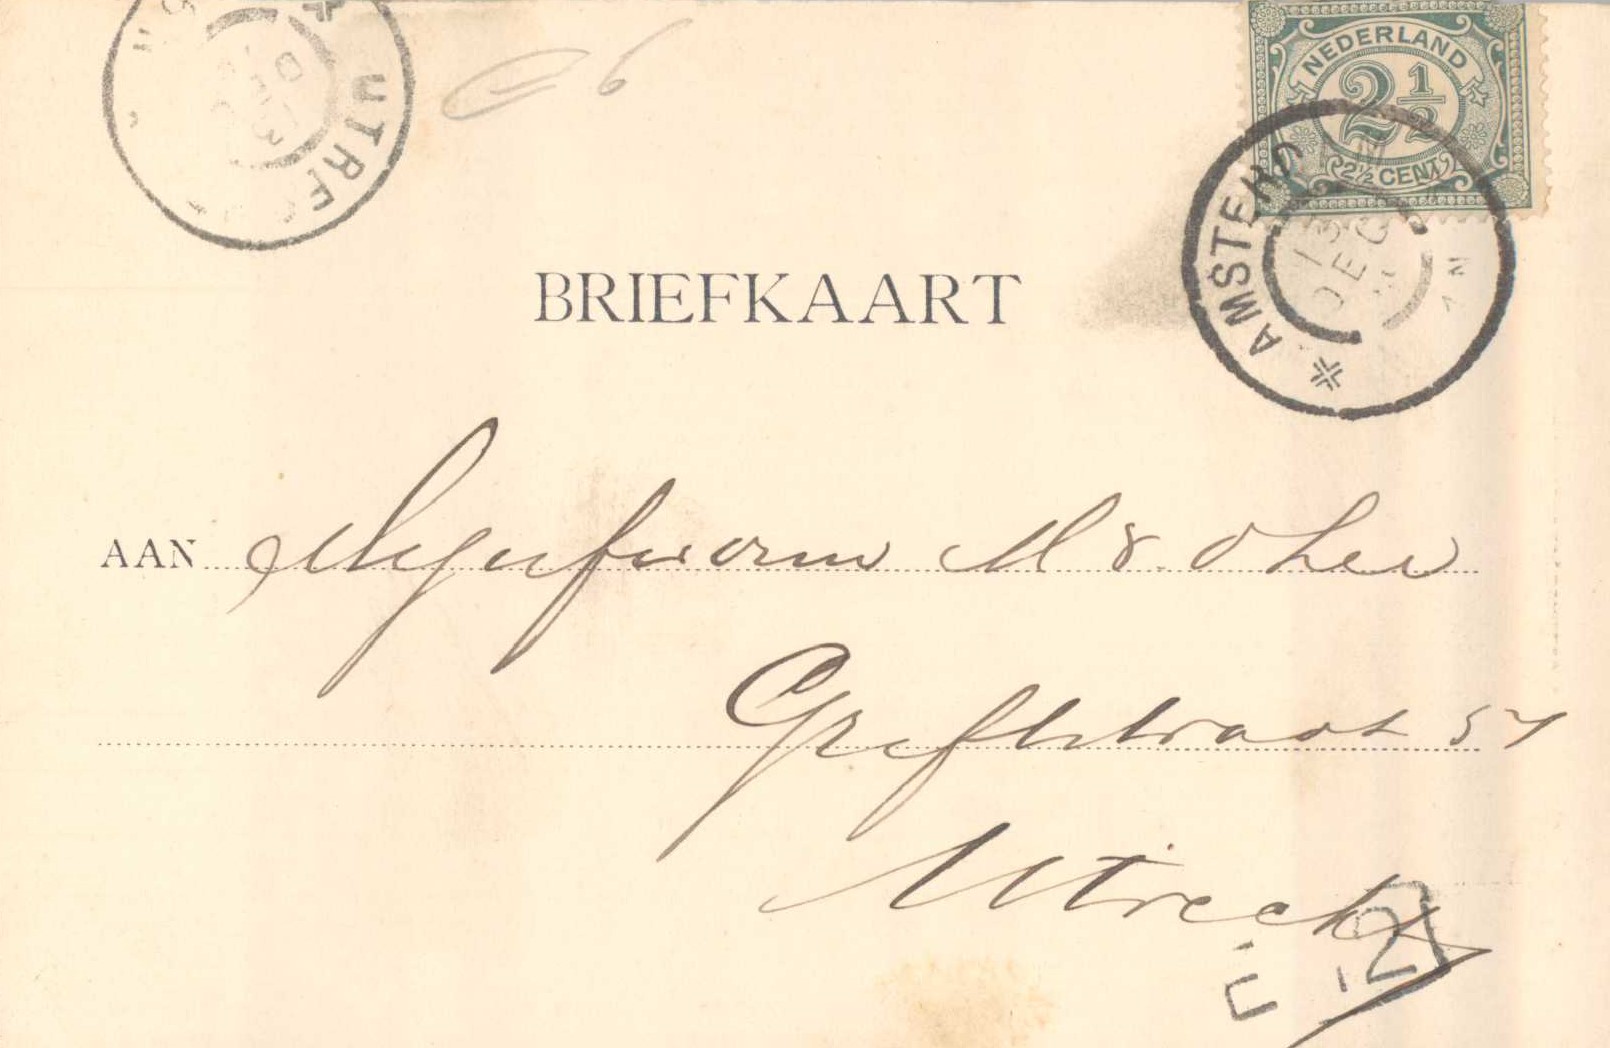 UTRECHT
6
NEDERLAND
2½
2½ CENT
AMSTERD
13
DEC
1 N
BRIEFKAART
AAN Mejufvrouw M v. d. Lee
Griftstraat 57
Utrecht